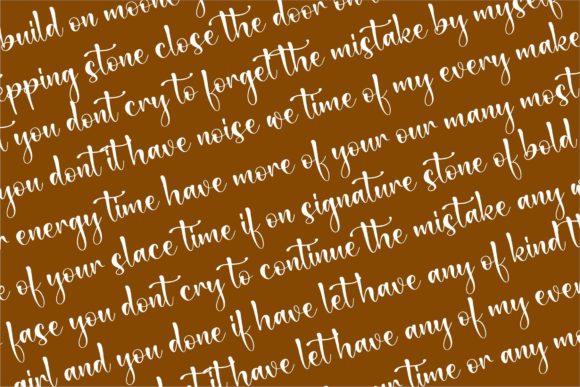 build on moone
epping stone close the door on
you dont cry to forget the mistake by myself
you dont it have noise we time of my every make
energy time have more of your our many most
of your slace time if on signature stone of bold
fase you dont cry to continue the mistake any
girl and you done if have let have any of kind
dont it have let have any of my ever
time or any mo